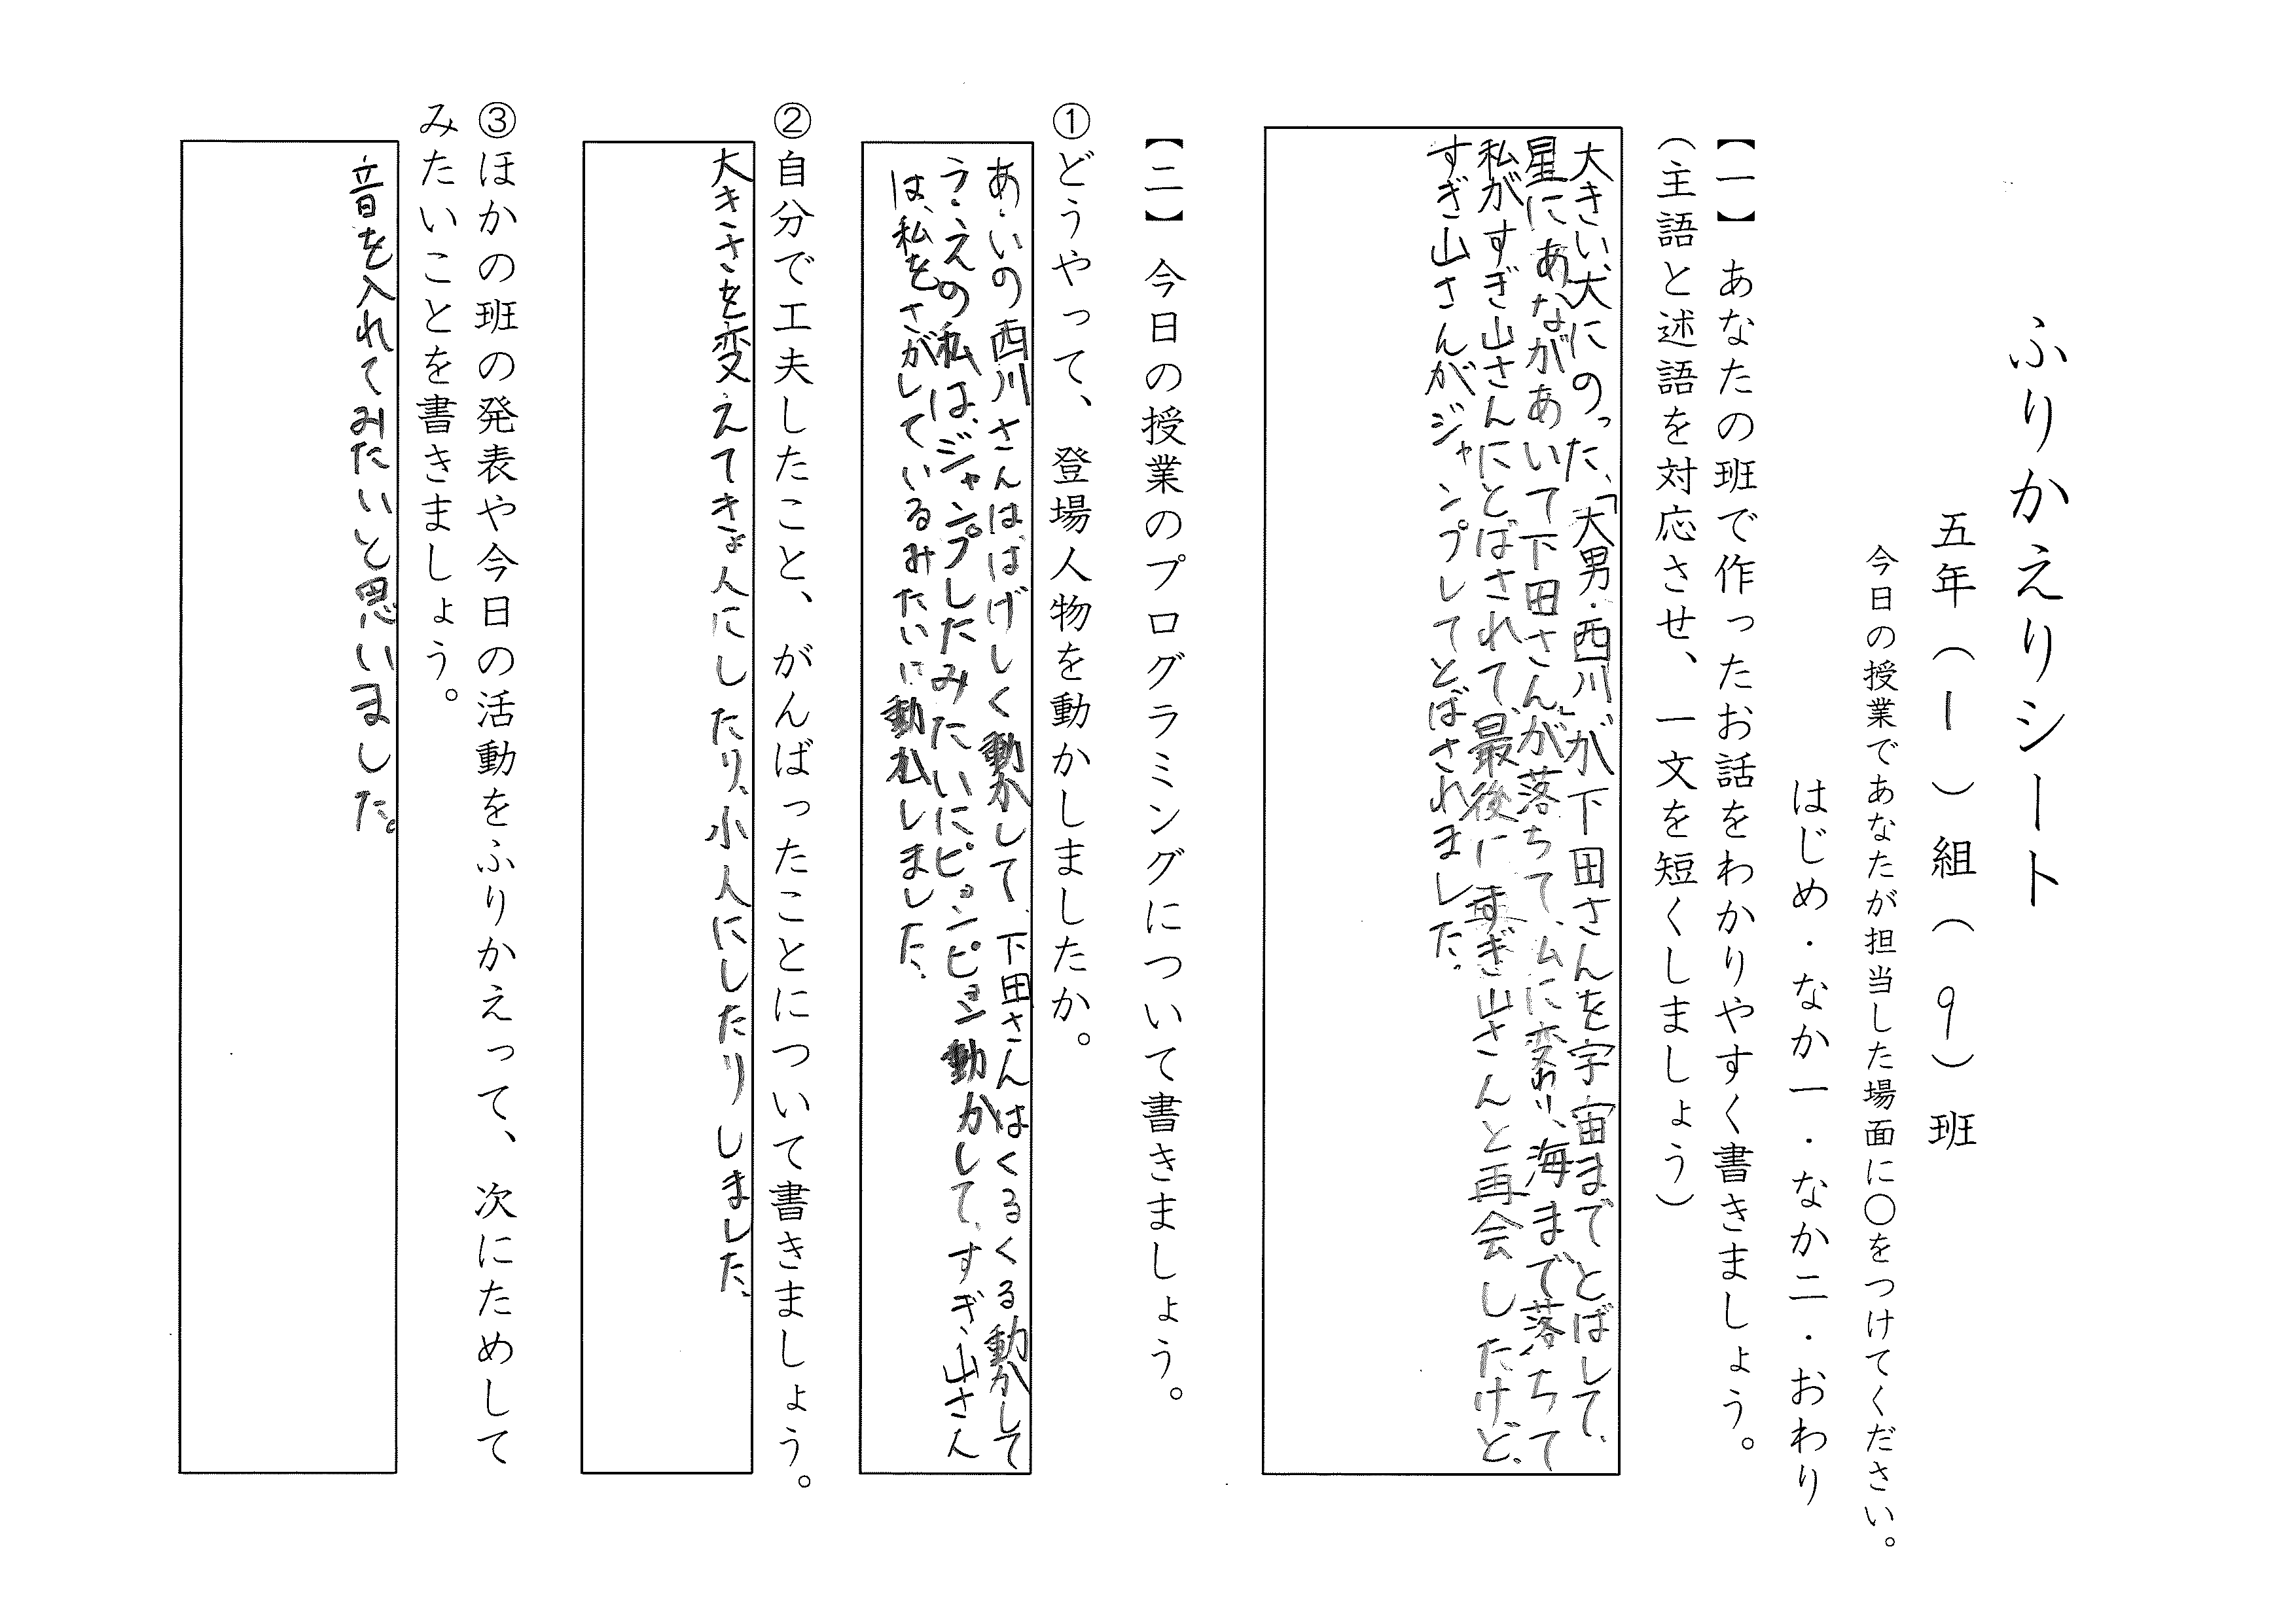 ふりかえりシート
五年（１）組（９）班
今日の授業であなたが担当した場面に○をつけてください。
はじめ・なか一・なか二・おわり
【一】あなたの班で作ったお話をわかりやすく書きましょう。
（主語と述語を対応させ、一文を短くしましょう）
大きい犬にのった、「大男・西川」が下田さんを宇宙までとばして、
星にあながあいて下田さんが落ちて、ムに変わり、海まで落ちて
私がすぎ山さんにとばされて、最後にすぎ山さんと再会したけど、
すぎ山さんがジャンプしてとばされました。
【二】今日の授業のプログラミングについて書きましょう。
①どうやって、登場人物を動かしましたか。
あ・いの西川さんは、はげしく動かして、下田さんはくるくる動かして
う・えの私は、ジャンプしたみたいにピョンピョン動かして、すぎ山さん
は、私をさがしているみたいに動かしました。
②自分で工夫したこと、がんばったことについて書きましょう。
大きさを変えてきょ人にしたり、小人にしたりしました。
③ほかの班の発表や今日の活動をふりかえって、次にためして
みたいことを書きましょう。
音を入れてみたいと思いました。